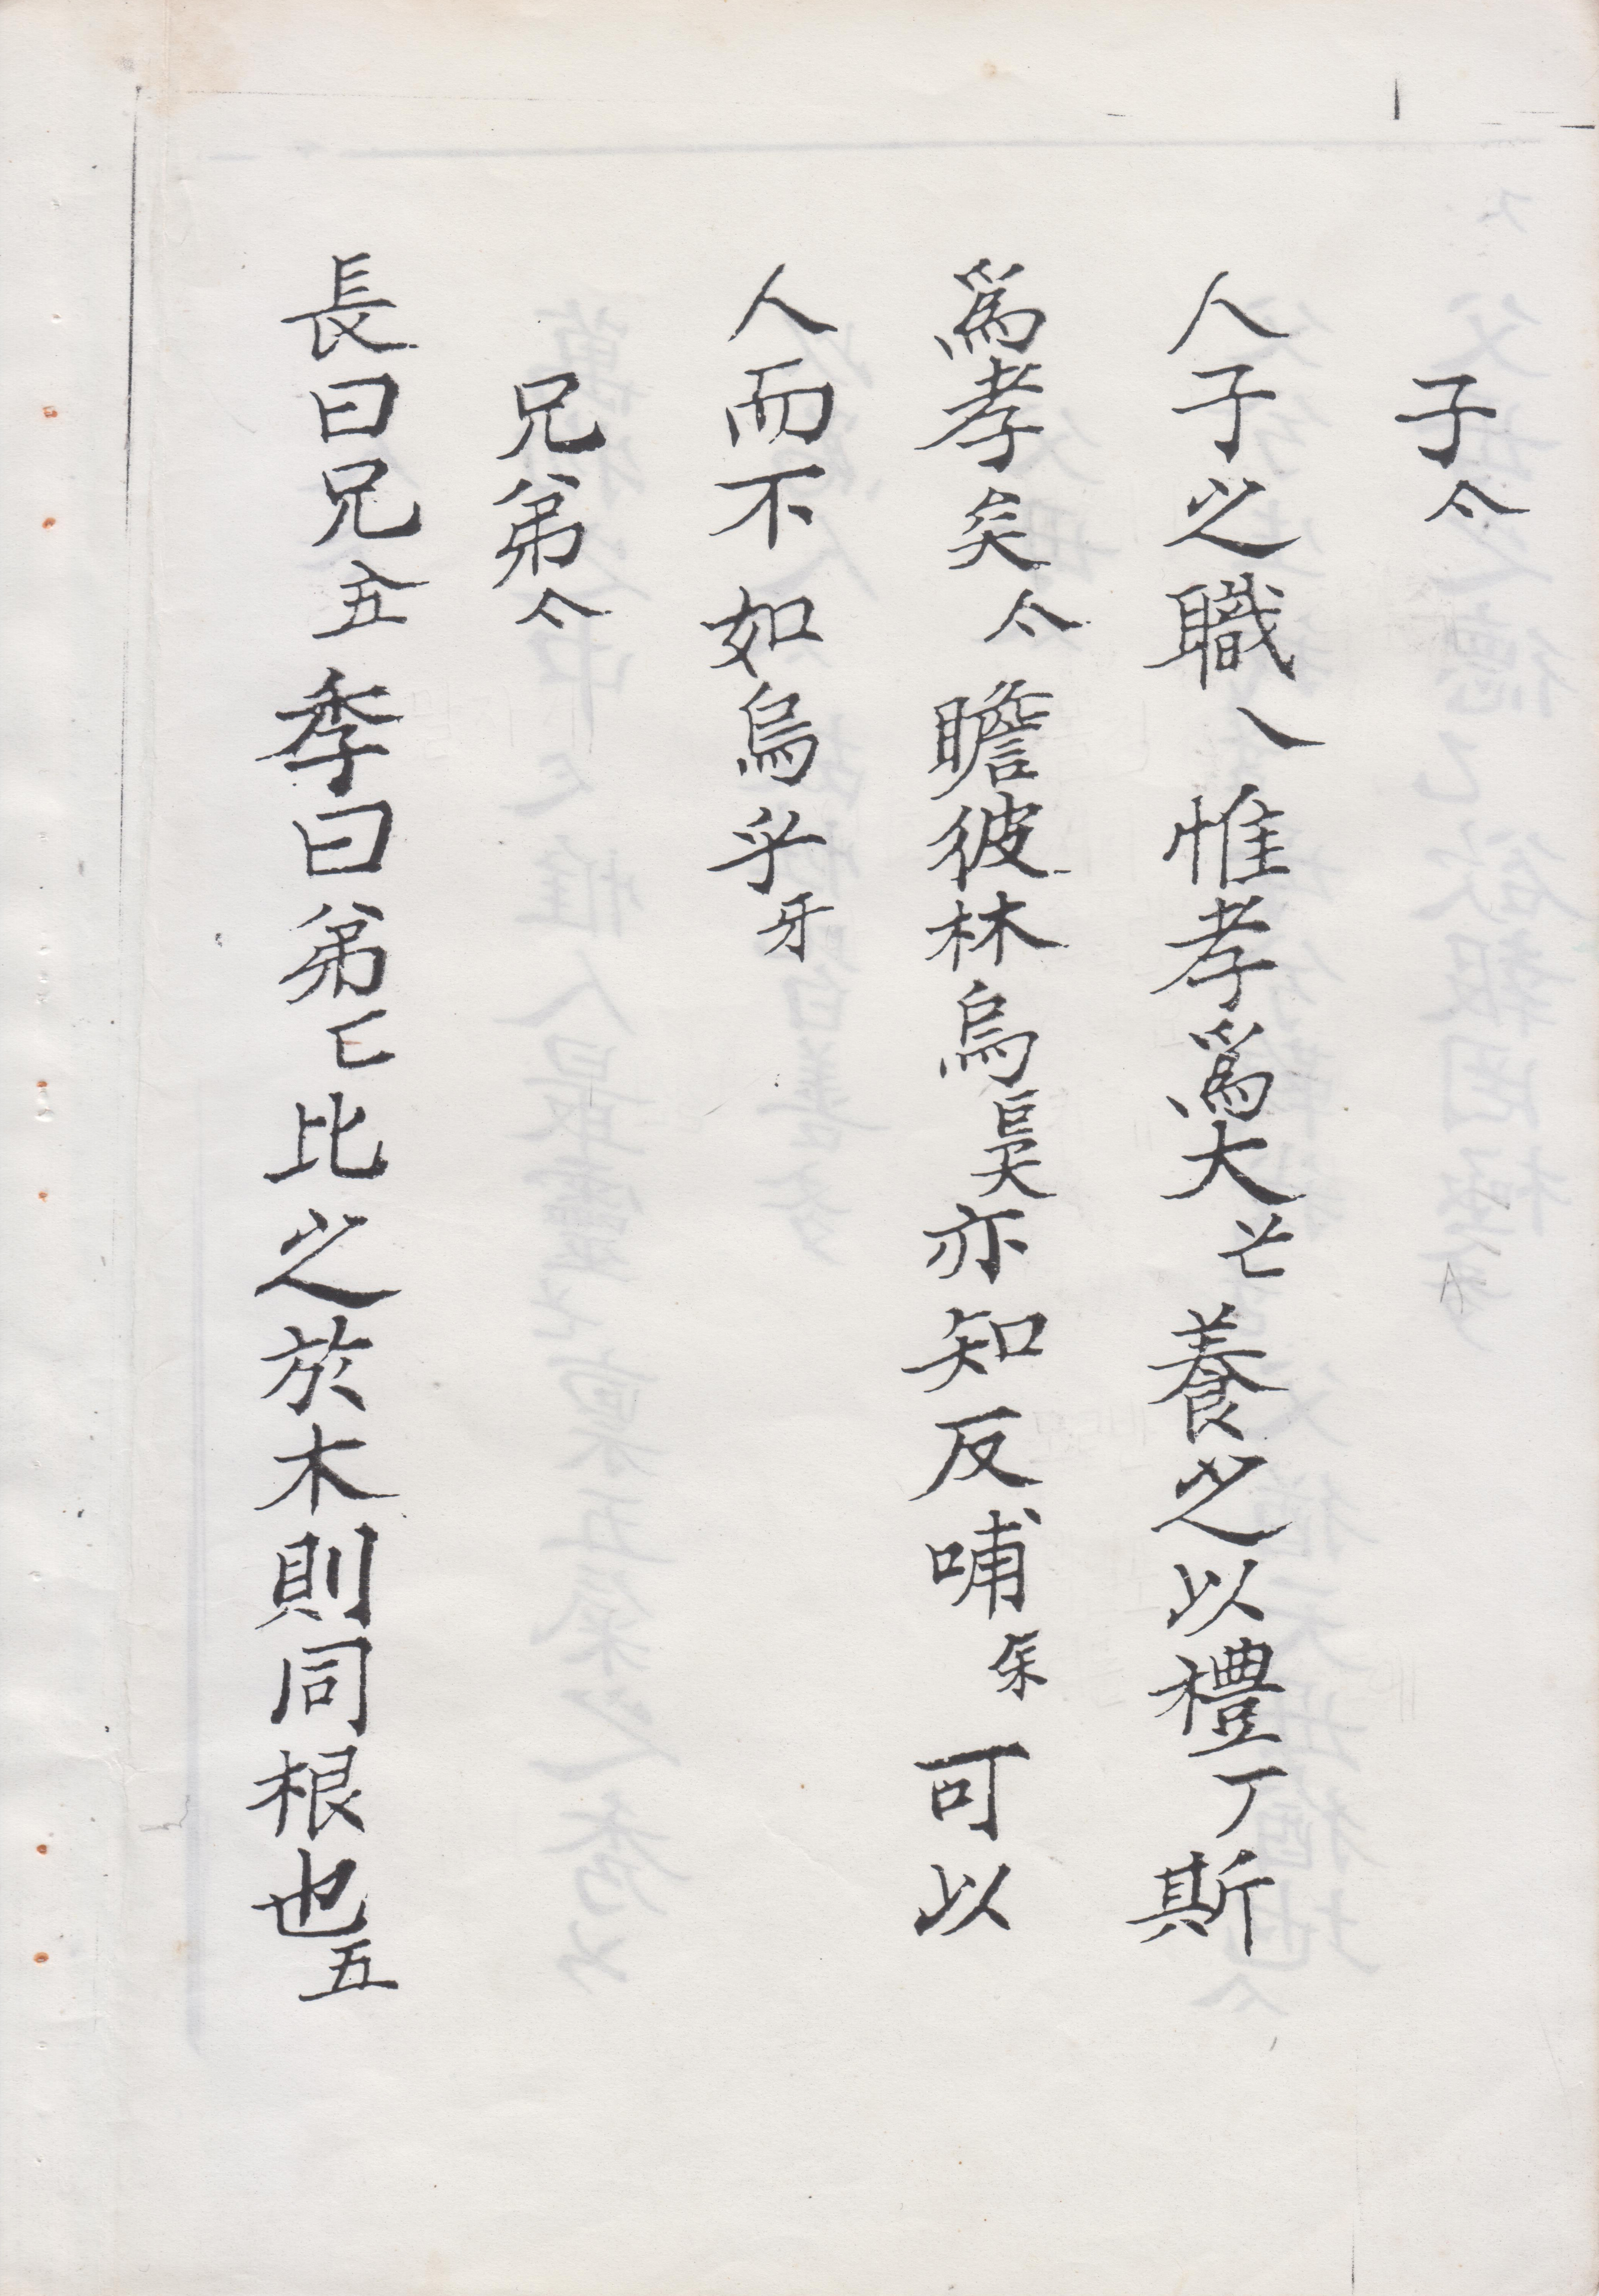 子亽
人子之職乀惟孝爲大丷匕養之以禮丆斯
爲孝矣亽瞻彼林烏亦知反哺可以
人而不如烏乎牙
兄弟亽
長曰兄五季曰弟匕比之於木則同根也五